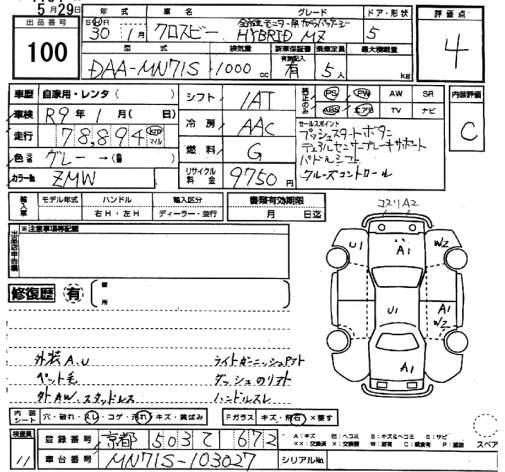 5月29日
年式 車名 グレード ドア・形状 評価点
出品番号 100
SH 30年 1月 クロスビー HYBRID MZ 5 4
型式 排気量 新車保証書 乗車定員 最大積載量
有無記入
DAA-MN71S 1000cc 有 5人 kg
車歴 自家用・レンタ( ) シフト 1AT PS PW AW SR 内装評価
車検 R9年 1月( 日) ABS エアB TV ナビ C
走行 78,894 km マイル 冷房 AAC セールスポイント
プッシュスタートボタン
デュアルセンサーブレーキサポート
色 グレー→( ) 燃料 G パドルシフト
カラーNo. ZMW リサイクル料金 9750円 クルーズコントロール
輸入車 モデル年式 ハンドル 輸入区分 書類有効期限
年 右H・左H ディーラー・並行 月 日迄
コスリA2
※注意事項等記載
U1 A1 W2
修復歴 有 箇所
U1 A1 W2
A1
外装A.U
ペット毛
外AW.スタッドレス ハンドルスレ
内装シート 穴・破れ・スレ・コゲ・汚れ・キズ・黄ばみ Fガラス キズ・飛石・×要す
検査員 11 登録番号 京都 503 て 672
スペア
車台番号 MN71S-103027 シリアルNo.